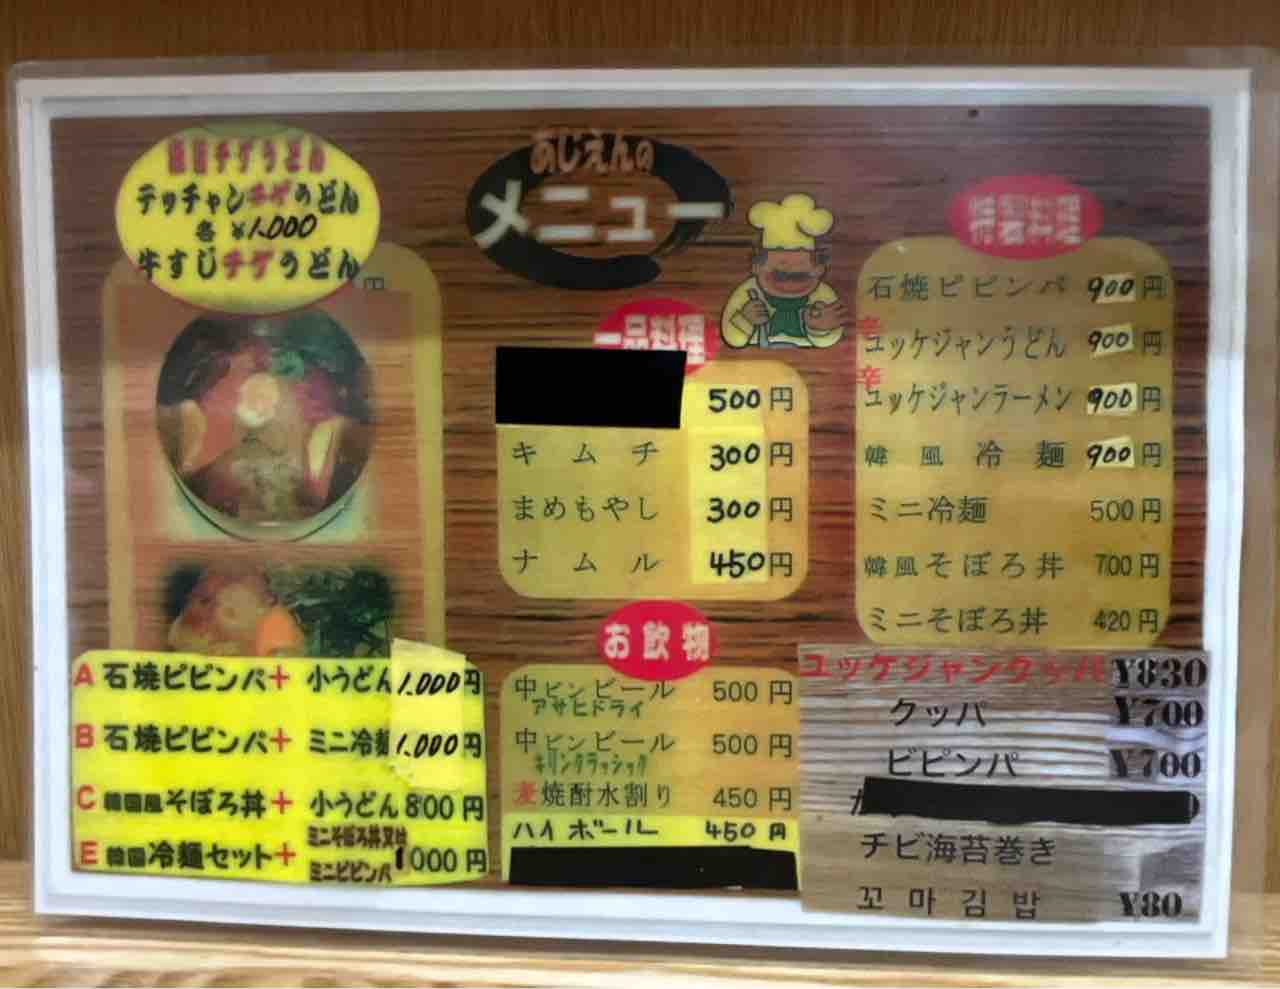 チゲうどん
テッチャンチゲうどん
各 ¥1.000
牛すじチゲうどん
円
あじえんの
メニュー
一品料理
500円
キムチ 300円
まめもやし 300円
ナムル 450円
お飲物
中ビンビール 500円
アサヒドライ
中ビンビール 500円
キリンクラッシック
麦焼酎水割り 450円
ハイボール 450円
特製料理
石焼ビビンバ 900円
辛
ユッケジャンうどん 900円
辛
ユッケジャンラーメン 900円
韓風冷麺 900円
ミニ冷麺 500円
韓風そぼろ丼 700円
ミニそぼろ丼 420円
ユッケジャンクッパ ¥830
クッパ ¥700
ビビンバ ¥700
チビ海苔巻き
꼬마김밥 ¥80
A 石焼ビビンバ+ 小うどん 1.000円
B 石焼ビビンバ+ ミニ冷麺 1.000円
C 韓国風そぼろ丼+ 小うどん 800円
E 韓国冷麺セット+ ミニそぼろ丼又は
ミニビビンバ 1000円